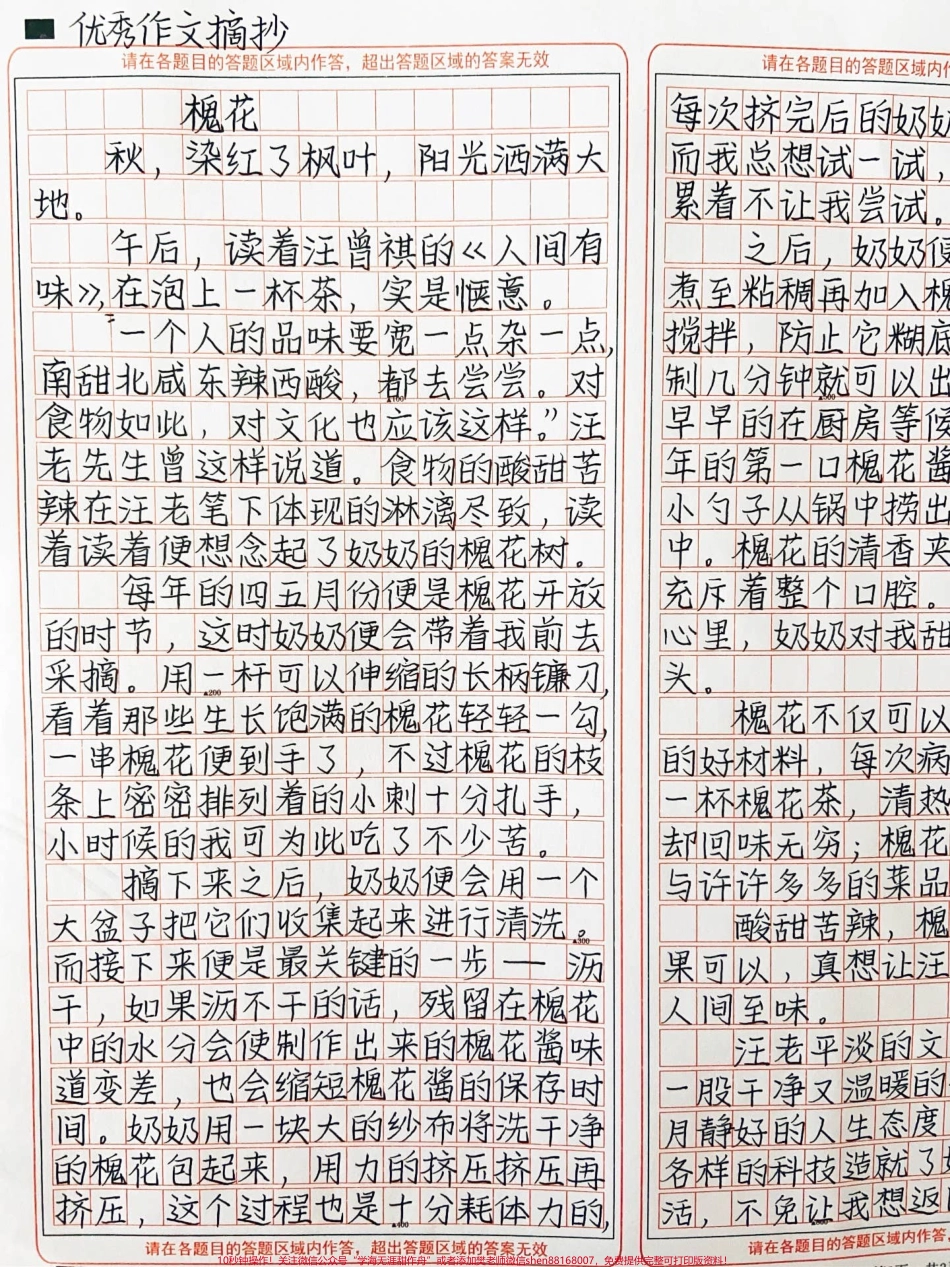 优秀作文摘抄
请在各题目的答题区域内作答，超出答题区域的答案无效
槐花
秋，染红了枫叶，阳光洒满大
地。
午后，读着汪曾祺的《人间有
味》，在泡上一杯茶，实是惬意。
“一个人的品味要宽一点杂一点，
南甜北咸东辣西酸，都去尝尝。对
食物如此，对文化也应该这样。”汪
老先生曾这样说道。食物的酸甜苦
辣在汪老笔下体现的淋漓尽致，读
着读着便想念起了奶奶的槐花树。
每年的四五月份便是槐花开放
的时节，这时奶奶便会带着我前去
采摘。用一杆可以伸缩的长柄镰刀，
▲200
看着那些生长饱满的槐花轻轻一勾，
一串槐花便到手了，不过槐花的枝
条上密密排列着的小刺十分扎手，
小时候的我可为此吃了不少苦。
摘下来之后，奶奶便会用一个
大盆子把它们收集起来进行清洗。
▲300
而接下来便是最关键的一步——沥
干，如果沥不干的话，残留在槐花
中的水分会使制作出来的槐花酱味
道变差，也会缩短槐花酱的保存时
间。奶奶用一块大的纱布将洗干净
的槐花包起来，用力的挤压挤压再
挤压，这个过程也是十分耗体力的，
▲400
请在各题目的答题区域内作答，超出答题区域的答案无效
请在各题目的答题区域内作
每次挤完后的奶奶
而我总想试一试，
累着不让我尝试。
之后，奶奶便
煮至粘稠再加入槐
搅拌，防止它糊底
制几分钟就可以出
早早的在厨房等候
年的第一口槐花酱
小勺子从锅中捞出
中。槐花的清香夹
充斥着整个口腔。
心里，奶奶对我甜
头。
槐花不仅可以
的好材料，每次病
一杯槐花茶，清热
却回味无穷；槐花
与许许多多的菜品
酸甜苦辣，槐
果可以，真想让汪
人间至味。
汪老平淡的文
一股干净又温暖的
月静好的人生态度
各样的科技造就了
活，不免让我想返
请在各题目的答题区域内作答，
10秒钟操作！关注微信公众号“学海无涯甜作舟”或者添加樊老师微信shen88168007，免费提供完整可打印版资料！